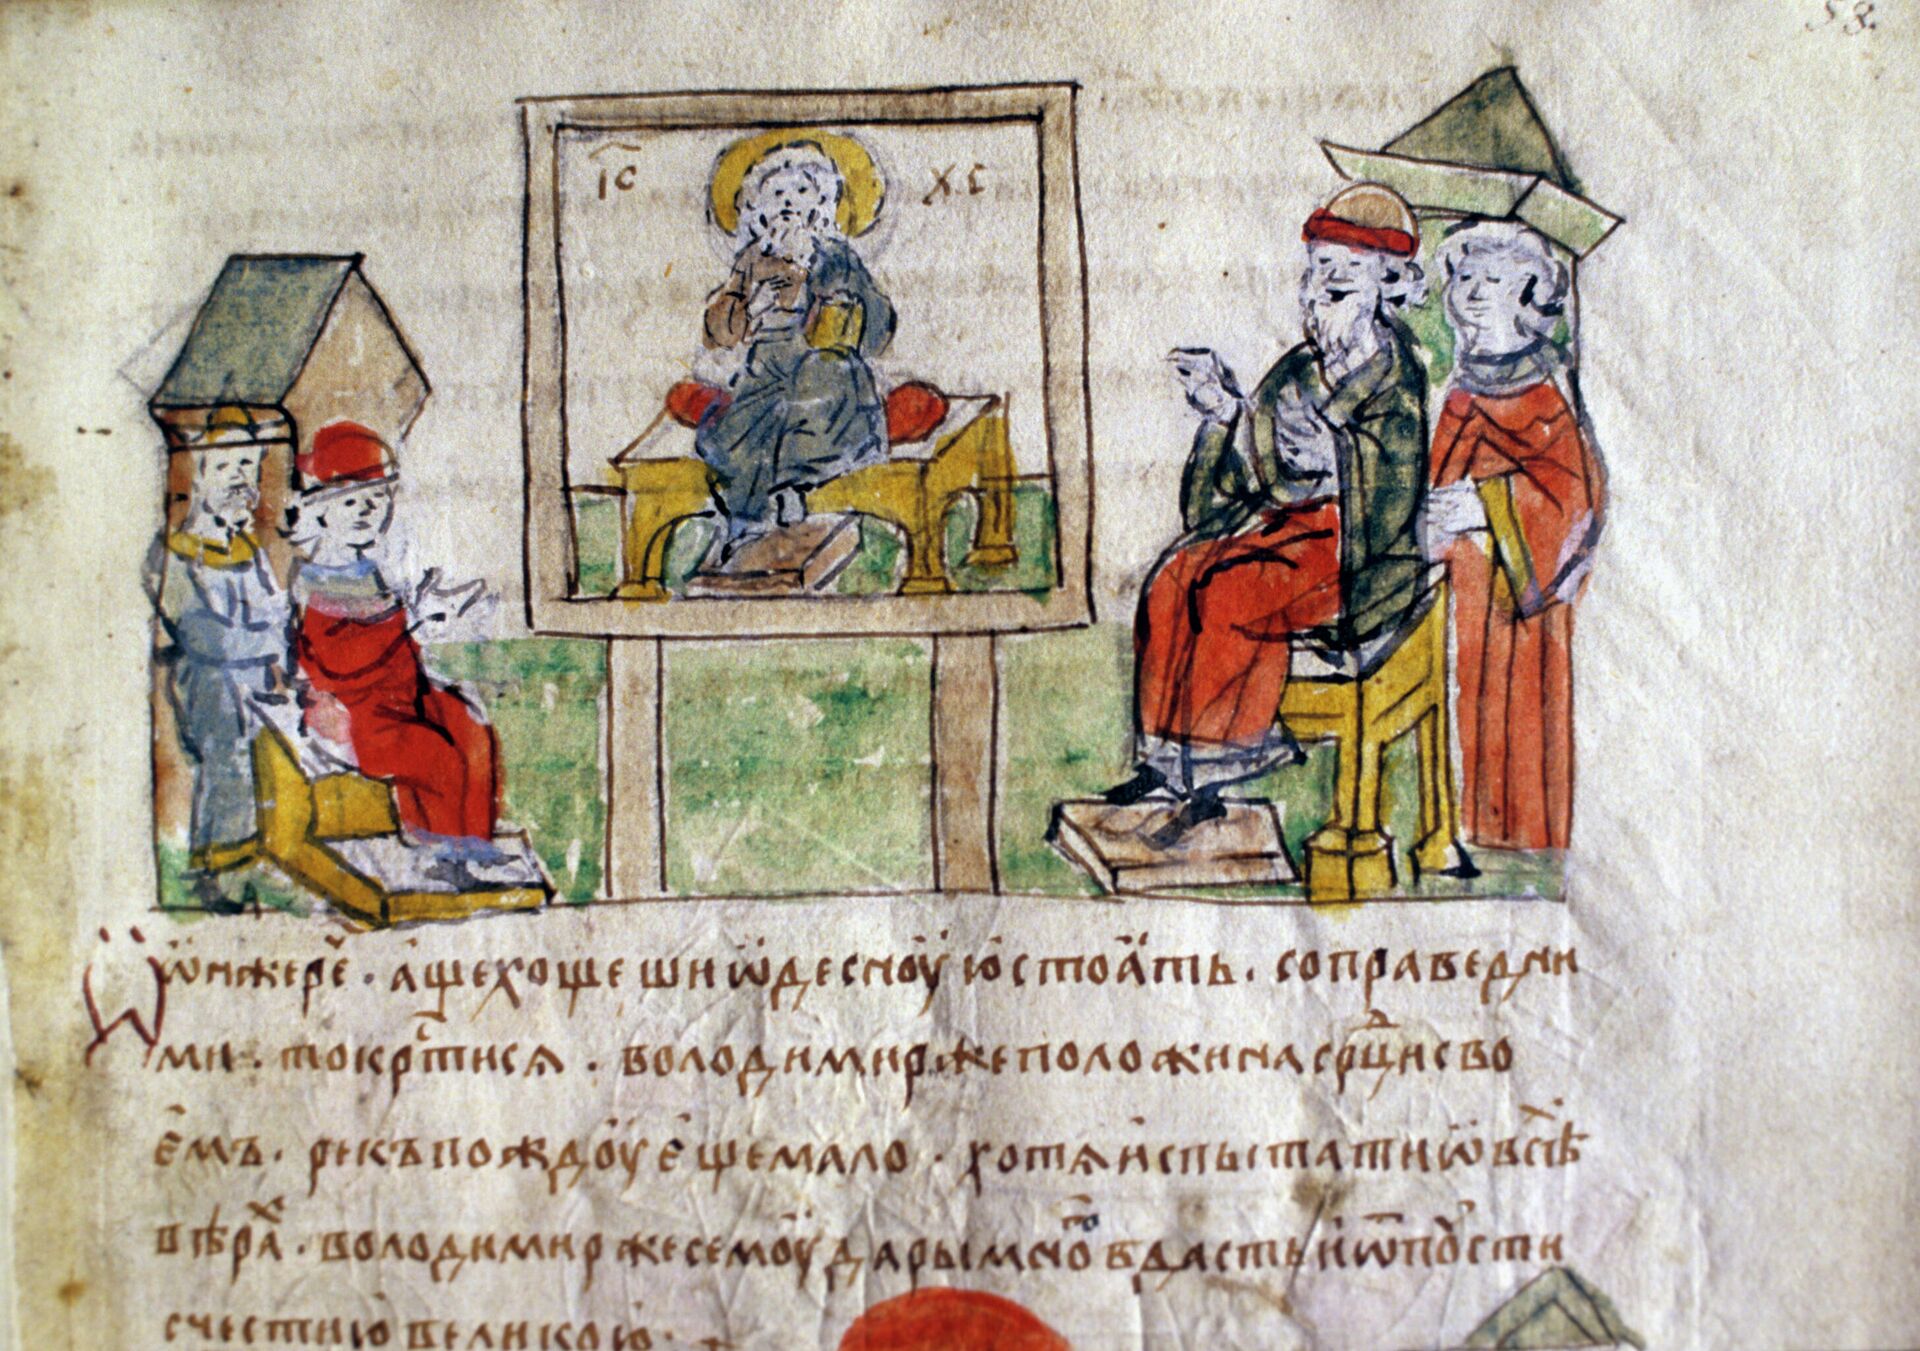 58.
І҃С ХС
ѿнжере҇. аще хощеши ѿдесноую стоати. соправедни
ми. токрⷭ҇тися. володимиръ же положи на срⷣци сво
емъ. рекъ пождоу еще мало. хотя испытати ѿ всѣⷯ
вѣраⷯ. володимир же семоу дары мноⷢ вдасть и ѿпоусти
с честию великою.